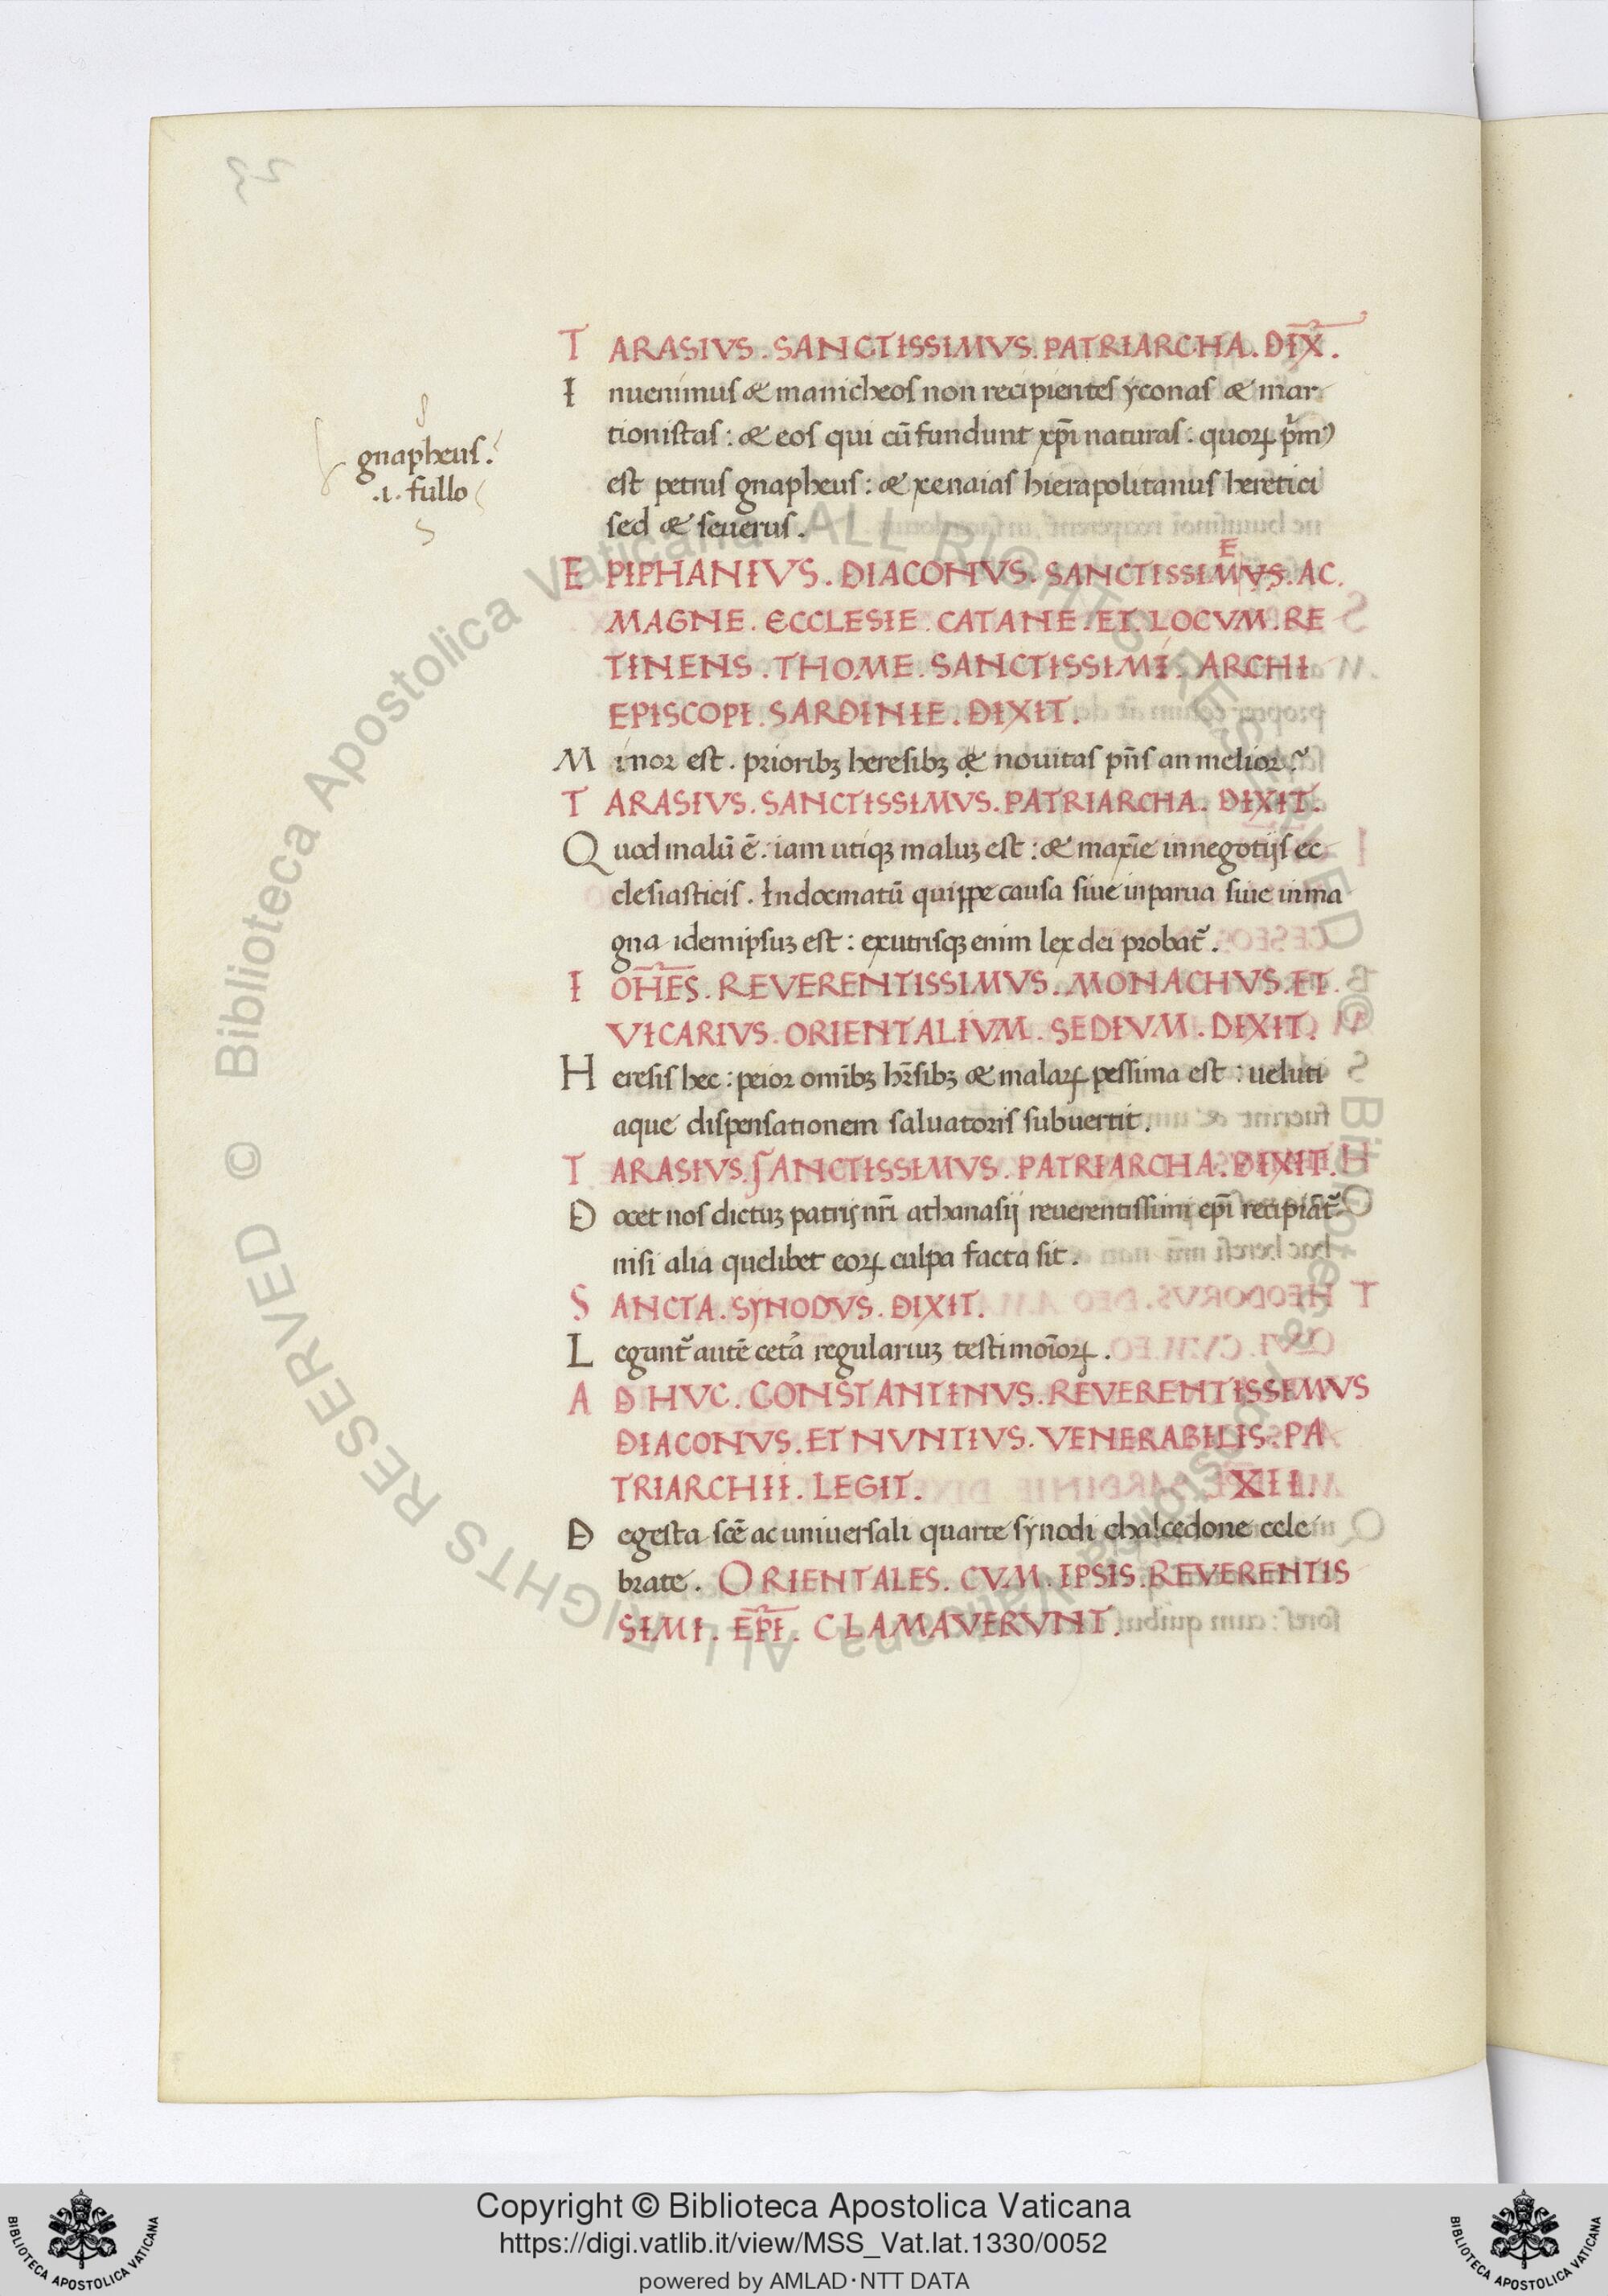 TARASIVS. SANCTISSIMVS. PATRIARCHA. DIX̅.
Inuenimus & manicheos non recipientes yconas & mar
tionistas: & eos qui cū fundunt xp̄i naturas: quoꝝ p̓mꝰ
est petrus gnapheus: & xenaias hierapolitanus heretici
sed & seuerus.
gnapheus.
.i. fullo
EPIPHANIVS. DIACONVS. SANCTISSIMVS. AC.
E
MAGNE. ECCLESIE. CATANE. ET. LOCVM. RE
TINENS. THOME. SANCTISSIMI. ARCHI
EPISCOPI. SARDINIE. DIXIT.
Minor est. prioribꝫ heresibꝫ ę nouitas pn̄s an melior?
TARASIVS. SANCTISSIMVS. PATRIARCHA. DIXIT.
Quod malū ē. iam utiqꝫ maluꝫ est: & maxīe in negotijs ec
clesiasticis. In docmatū quippe causa siue in parua siue in ma
gna idem ipsuꝫ est: ex utrisqꝫ enim lex dei probat᷑.
IOH̅ES. REVERENTISSIMVS. MONACHVS. ET.
VICARIVS. ORIENTALIVM. SEDIVM. DIXIT.
Heresis hec: peior omībꝫ hr̄sibꝫ & malaꝝ pessima est: ueluti
aque dispensationem saluatoris subuertit.
TARASIVS. SANCTISSIMVS. PATRIARCHA. DIXIT.
Docet nos dictuꝫ patrij nr̄i athanasij reuerentissimi ep̄i recipiāt᷑
nisi alia quelibet eoꝝ culpa facta sit.
SANCTA. SYNODVS. DIXIT.
Legunt᷑ autē cet̓a regulariuꝫ testimoīoꝝ.
AD HVC. CONSTANTINVS. REVERENTISSIMVS
DIACONVS. ET NVNTIVS. VENERABILIS. PA
TRIARCHII. LEGIT. XII.
De gesta scē ac uniuersali quarte synodi chalcedone cele
brate. ORIENTALES. CVM. IPSIS. REVERENTIS
SIMI. EP̅I. CLAMAVERVNT.
© Biblioteca Apostolica Vaticana ALL RIGHTS RESERVED © Biblioteca Apostolica Vaticana ALL RIGHTS RESERVED
Copyright © Biblioteca Apostolica Vaticana
https://digi.vatlib.it/view/MSS_Vat.lat.1330/0052
powered by AMLAD·NTT DATA
BIBLIOTECA APOSTOLICA VATICANA
BIBLIOTECA APOSTOLICA VATICANA